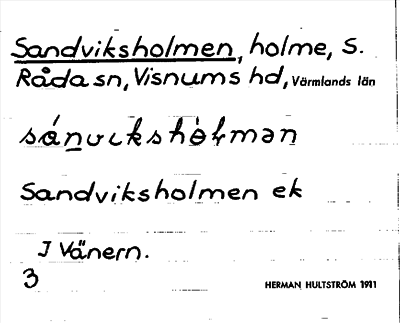 Sandviksholmen, holme, S.
Råda sn, Visnums hd, Värmlands län
Sandviksholmen ek
I Vänern.
3
HERMAN HULTSTRÖM 1911